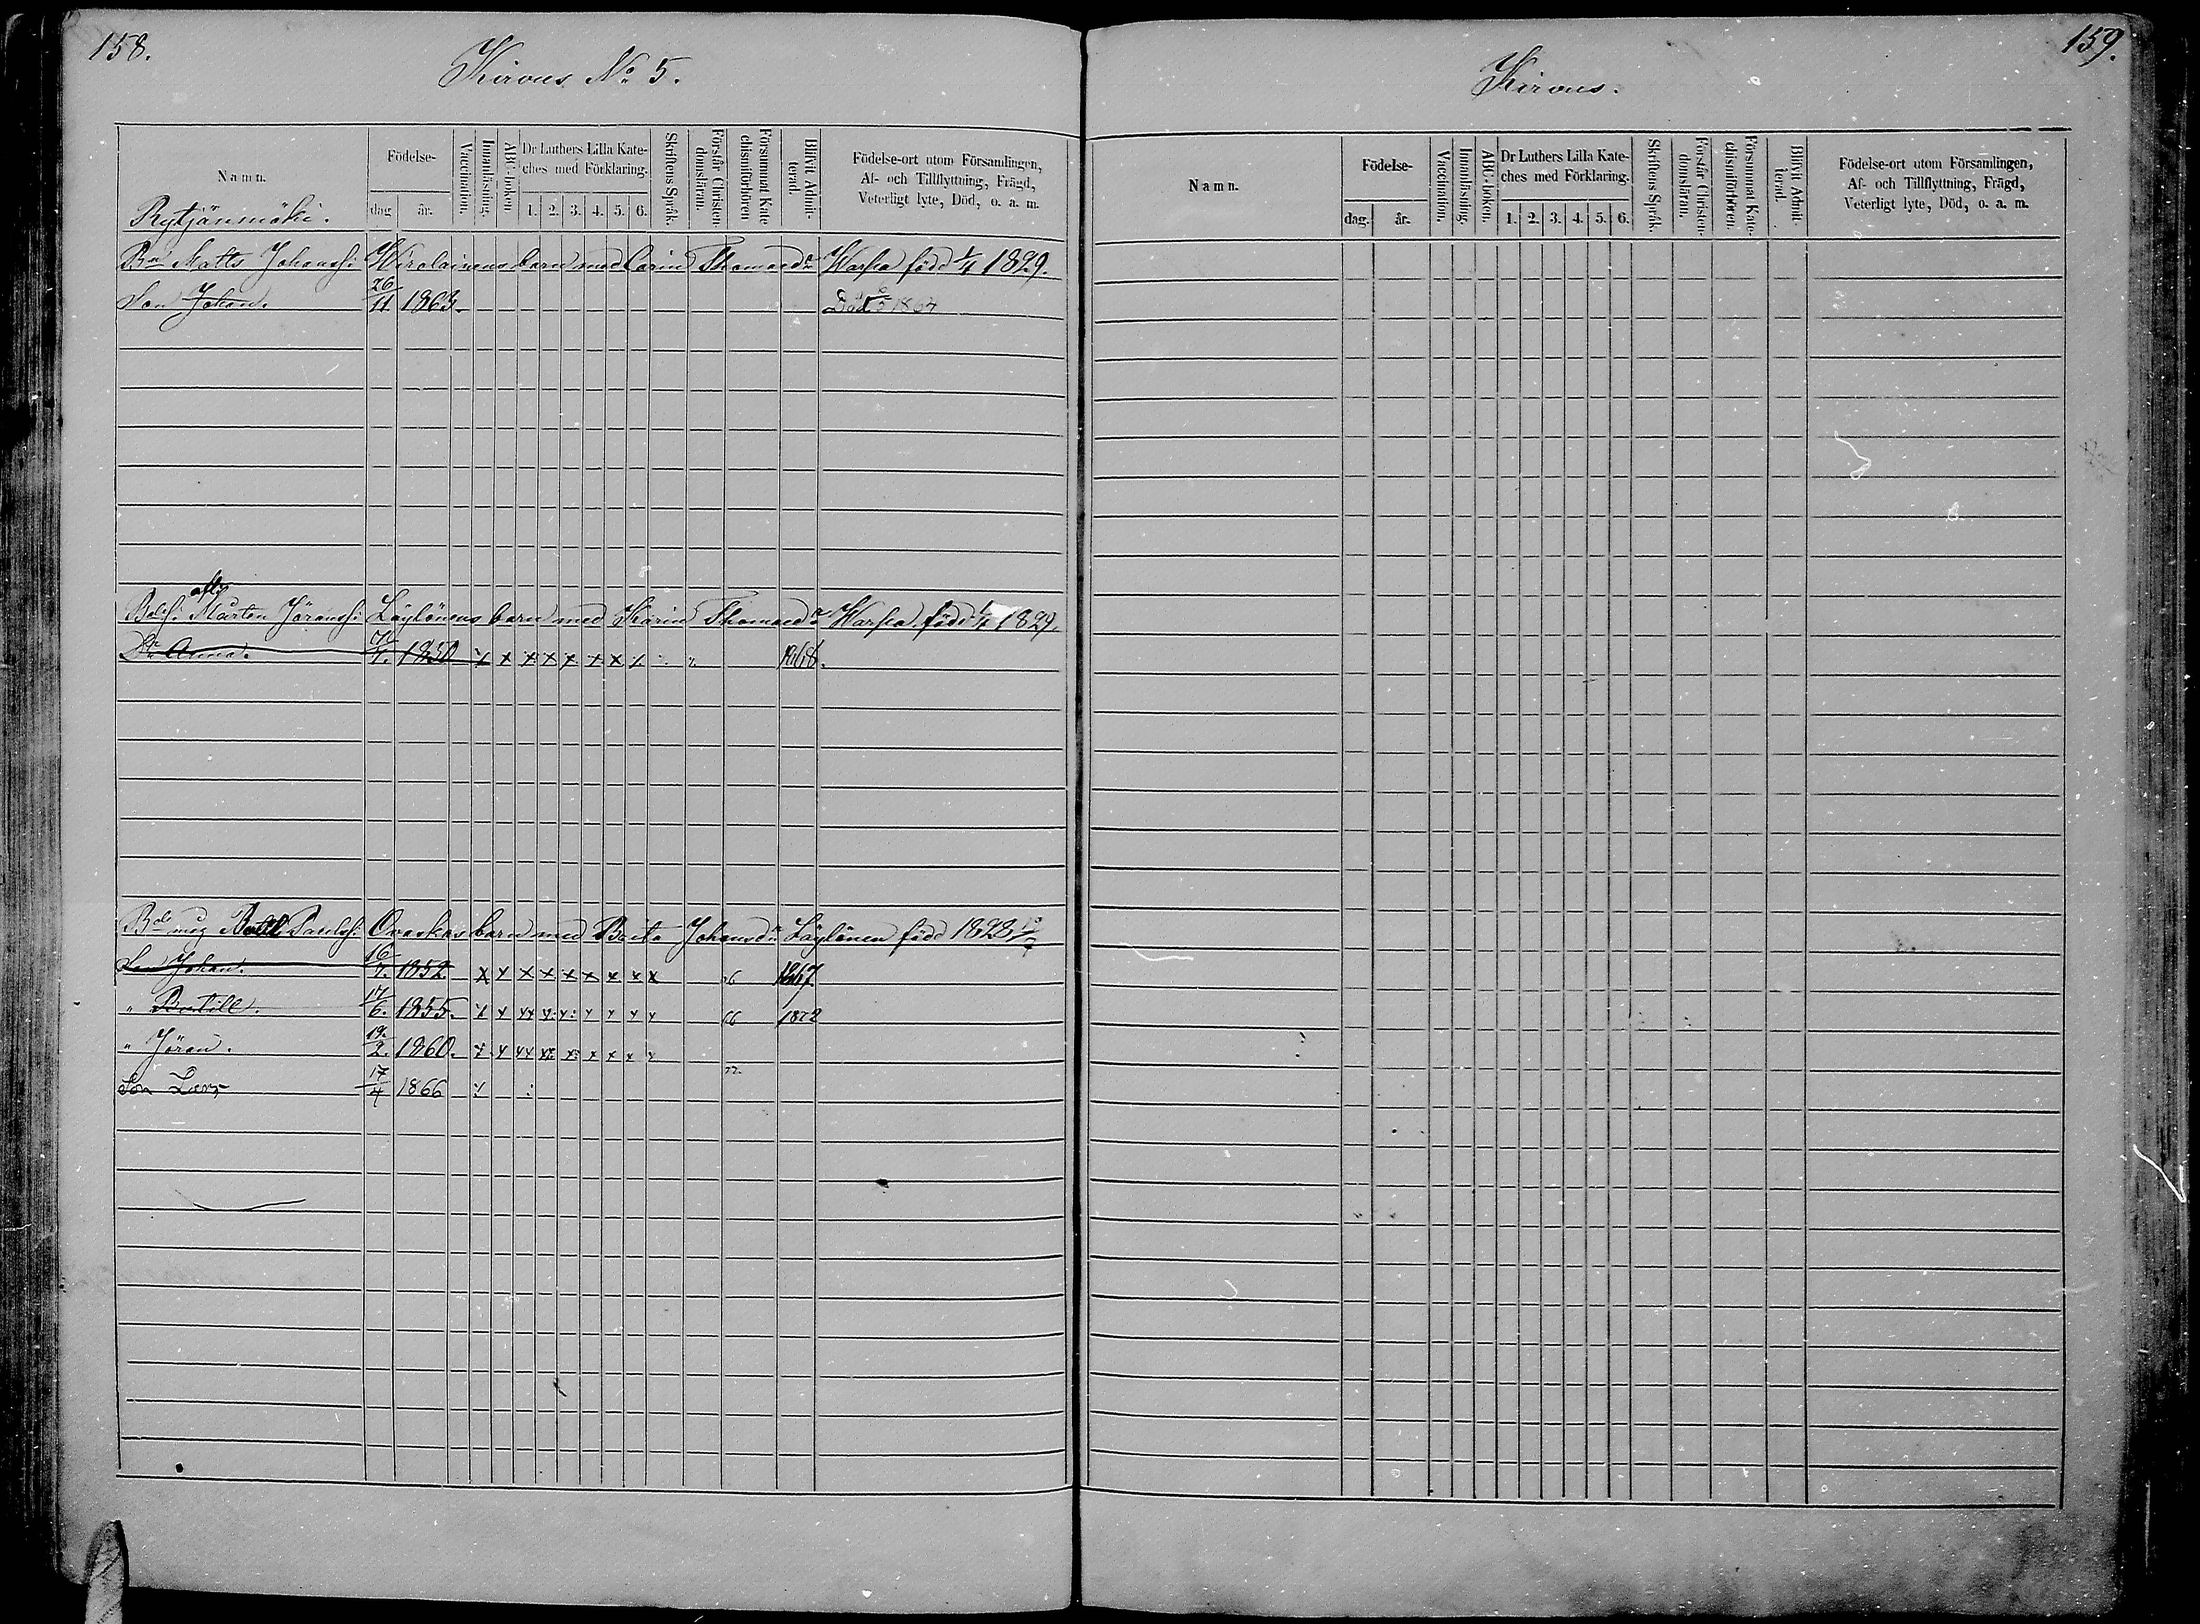 158.
Kirvus No 5.
Namn.
Födelse-
dag
år.
Vaccination.
Innanläsning.
ABC-boken
Dr Luthers Lilla Kate-
ches med Förklaring.
1. 2. 3. 4. 5. 6.
Skriftens Språk.
Förstår Christen-
domsläran.
Försummat Kate
chismiförhören
Blifvit Admit-
terad.
Födelse-ort utom Församlingen,
Af- och Tillflyttning, Frägd,
Veterligt lyte, Död, o. a. m.
Rytjänmäki.
Matts Johanss: Hirolainens barn med Carin Thomasdr Warsa född 1/4 1829.
Son Johan. 26/11 1863. Död 1864
aflr
Mårten Jöranss: Läylönens barn med Karin Thomasdr Warsa född 1/4 1829.
Dr Anna. 1850 x x x x x x x x 1868.
Bertil Paulss: Ovaskas barn med Brita Johansdr Läylönen född 1828
Son Johan. 16/7. 1852 x x x x x x x x x 1867.
" Bertill. 17/6. 1855. x x xx x x x x x x 66 1872
" Jöran. 19/2. 1860. x x xx xx x x x x x
72.
Son Lars 17/4 1866
159.
Kirvus.
Namn.
Födelse-
dag.
år.
Vaccination.
Innanläsning.
ABC-boken.
Dr Luthers Lilla Kate-
ches med Förklaring.
1. 2. 3. 4. 5. 6.
Skriftens Språk.
Förstår Christen-
domsläran.
Försummat Kate-
chismiförhören.
Blifvit Admit-
terad.
Födelse-ort utom Församlingen,
Af- och Tillflyttning, Frägd,
Veterligt lyte, Död, o. a. m.